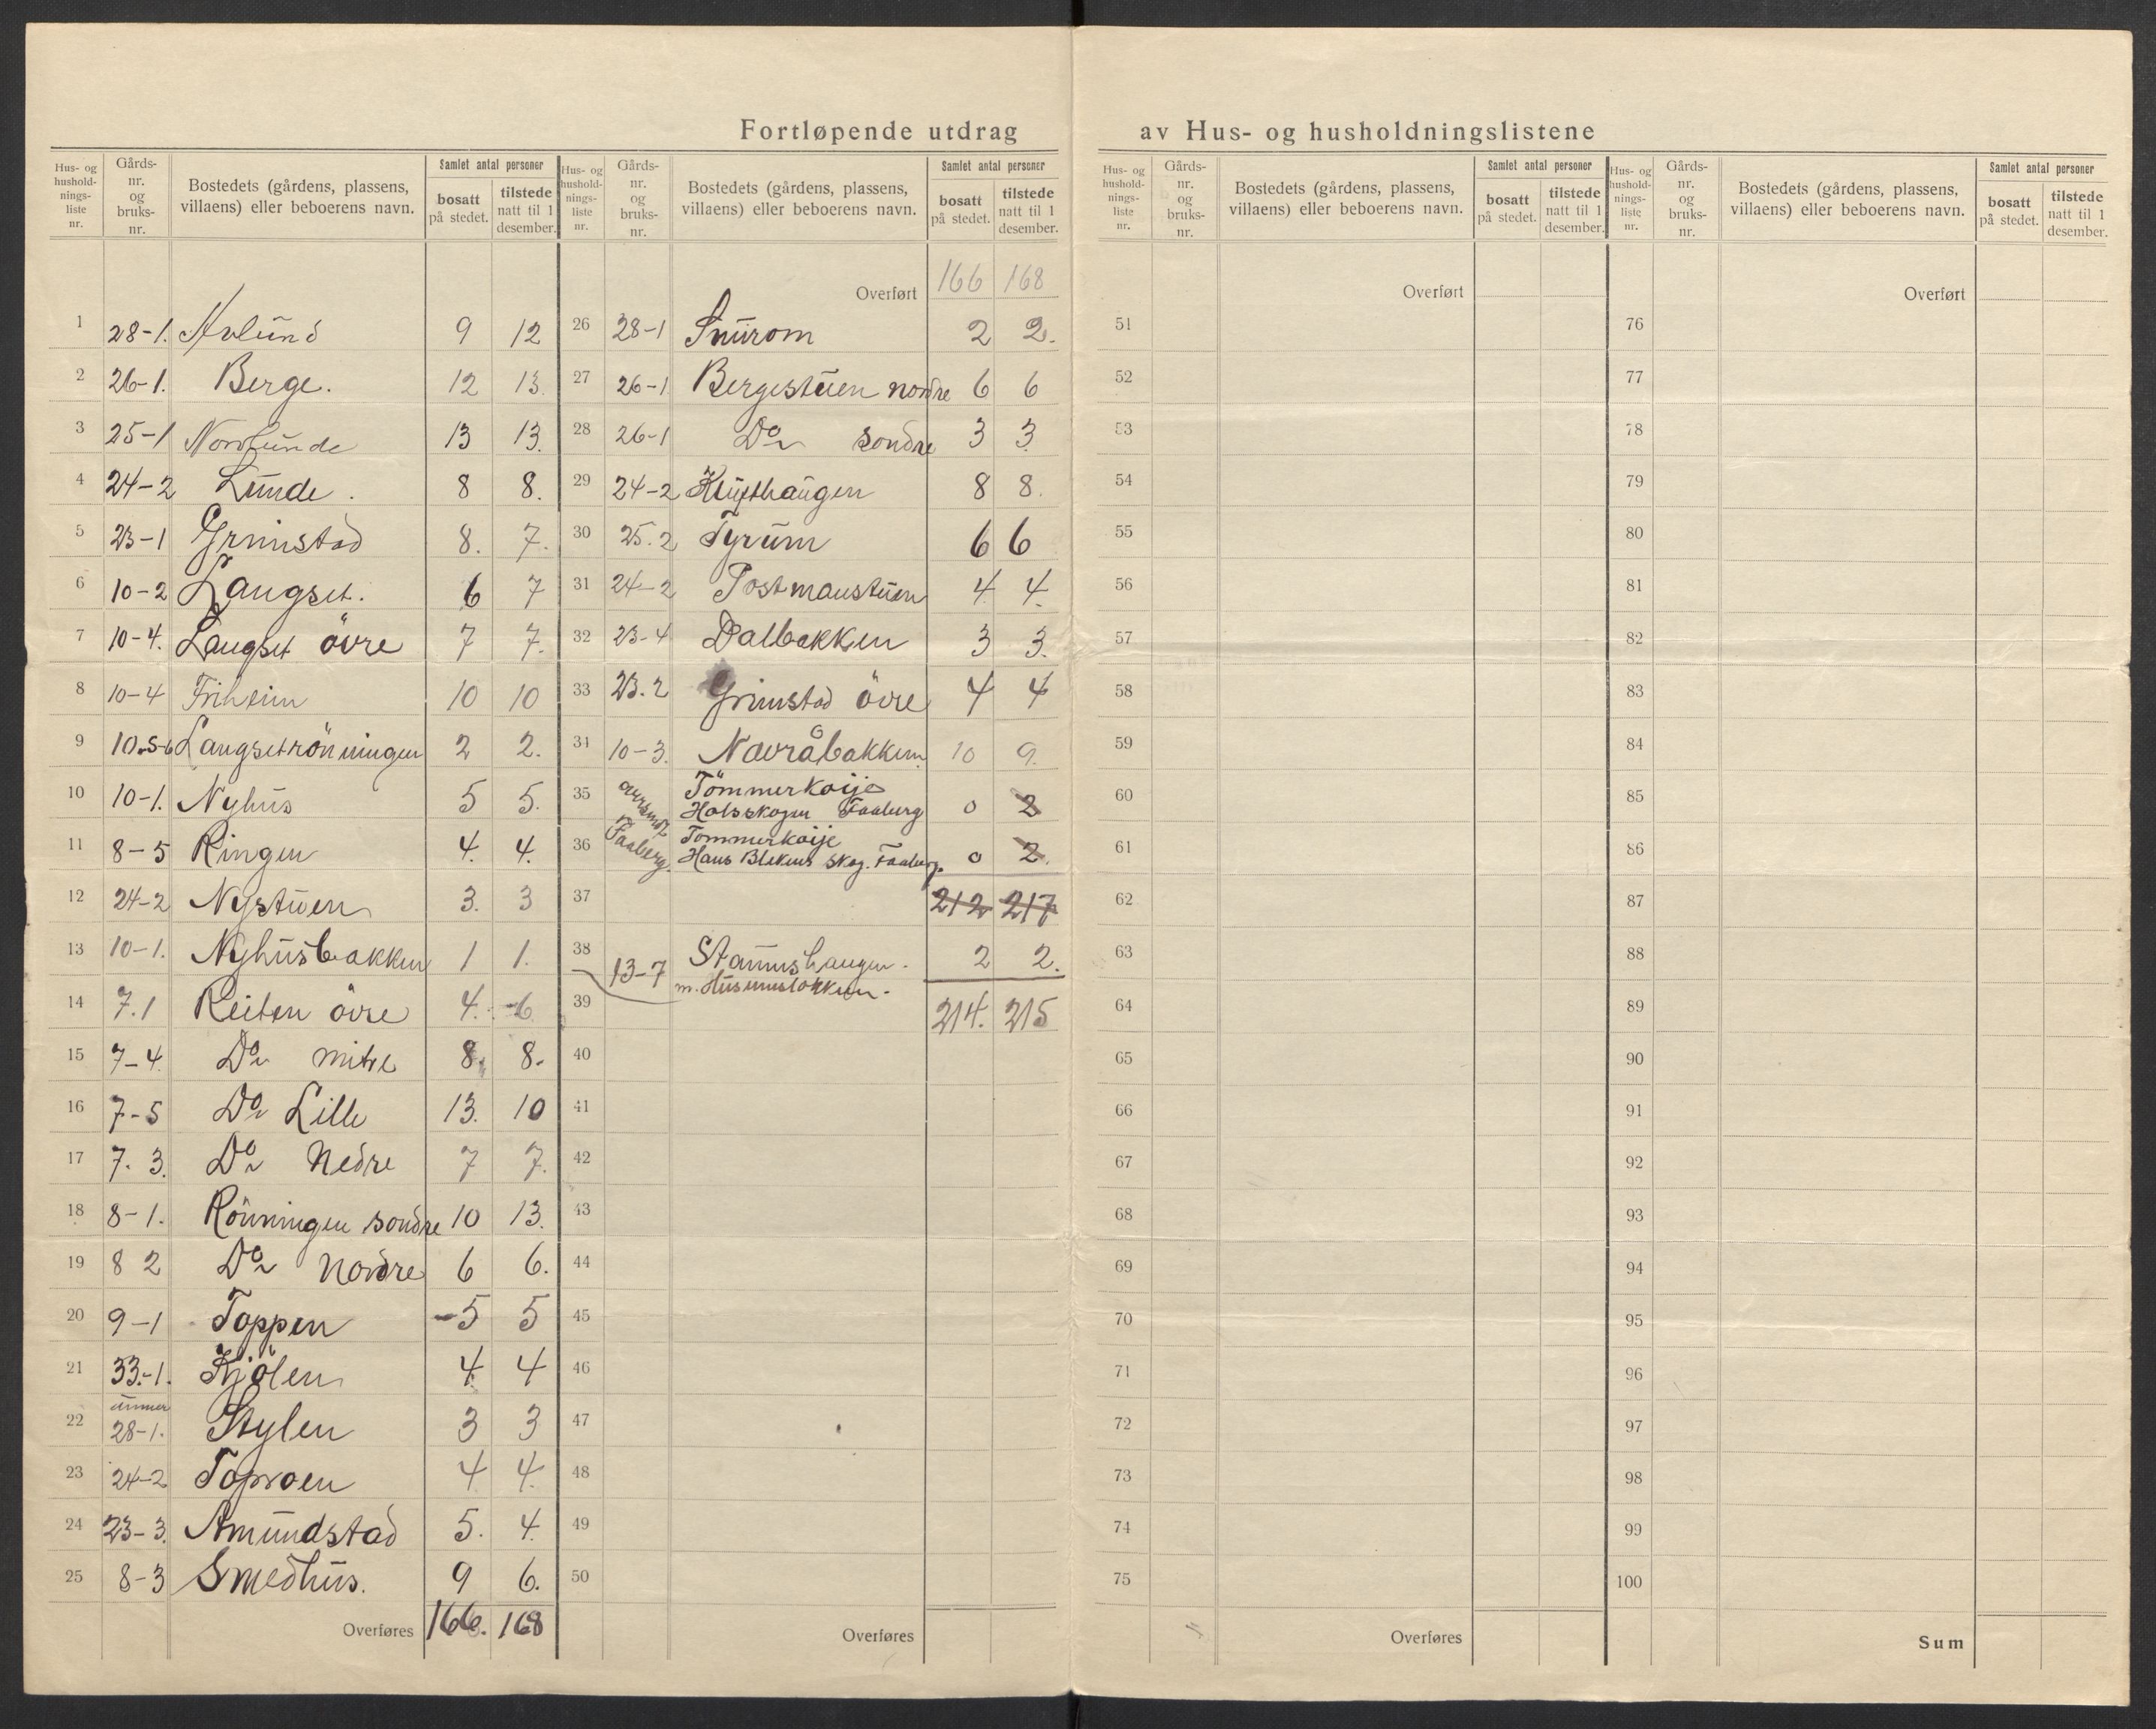 Fortløpende utdrag av Hus- og husholdningslistene
Hus- og hushold-nings-liste nr. Gårds-nr. og bruks-nr. Bostedets (gårdens, plassens, villaens) eller beboerens navn. Samlet antal personer bosatt på stedet. tilstede natt til 1 desember.
1 28-1. Avlund 9 12
2 26-1. Berge. 12 13
3 25-1 Nordlunde 13 13.
4 24-2 Lunde. 8 8.
5 23-1 Grimstad 8. 7.
6 10-2 Langset. 6 7
7 10-4. Langset övre 7 7.
8 10-4 Friheim 10 10
9 10.5-6 Langsetrönningen 2 2.
10 10-1. Nyhus 5 5.
11 8-5 Ringen 4. 4.
12 24-2 Nystuen 3. 3
13 10-1. Nyhusbakken 1 1.
14 7.1 Reiten övre 4. 6
15 7-4. Do mitre 8. 8.
16 7-5 Do Lille 13. 10
17 7. 3. Do Nedre 7 7.
18 8-1. Rönningen sondre 10 13.
19 8 2 Do Nordre 6 6.
20 9-1 Toppen -5 5
21 33.-1. Kjölen 4 4
22 28-1. Stylen 3 3
23 24-2 Toproen 4 4.
24 23-3. Amundstad 5. 4.
25 8-3 Smedhus. 9 6.
Overføres 166. 168
Hus- og hushold-nings-liste nr. Gårds-nr. og bruks-nr. Bostedets (gårdens, plassens, villaens) eller beboerens navn. Samlet antal personer bosatt på stedet. tilstede natt til 1 desember.
Overført 166 168
26 28-1 Snurom 2 2.
27 26-1 Bergestuen nordre 6 6
28 26-1 Do sondre 3 3.
29 24-2 Klufthaugen 8 8.
30 25.2 Tyrum 6 6
31 24-2 Postmanstuen 4. 4.
32 23-4 Dalbakken 3 3.
33 23.2 Grimstad övre 4 4
34 10-3. Navråbakken 10 9.
35 Tömmerkoije
Holsskogen Faaberg 0 2
36 Faaberg. Tommerkoije
Hans Blekens skog. Faaberg. 0 2.
37 212 217
38 13-7 Staurushaugen. 2 2.
39 214. 215
40
41
42
43
44
45
46
47
48
49
50
Overføres
Hus- og hushold-nings-liste nr. Gårds-nr. og bruks-nr. Bostedets (gårdens, plassens, villaens) eller beboerens navn. Samlet antal personer bosatt på stedet. tilstede natt til 1 desember.
Overført
51
52
53
54
55
56
57
58
59
60
61
62
63
64
65
66
67
68
69
70
71
72
73
74
75
Overføres
Hus- og hushold-nings-liste nr. Gårds-nr. og bruks-nr. Bostedets (gårdens, plassens, villaens) eller beboerens navn. Samlet antal personer bosatt på stedet. tilstede natt til 1 desember.
Overført
76
77
78
79
80
81
82
83
84
85
86
87
88
89
90
91
92
93
94
95
96
97
98
99
100
Sum